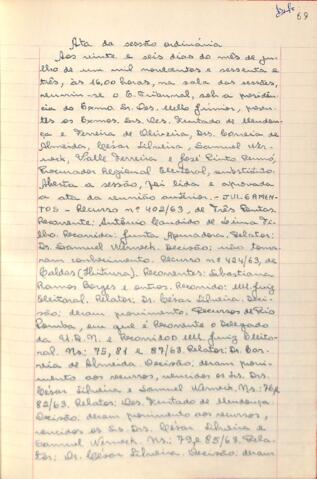 69
Ata da sessão ordinária
Aos vinte e seis dias do mês de ju
lho de um mil novecentos e sessenta e
três, às 16,00 horas, na sala das sessões,
reuniu-se o E. Tribunal, sob a presidên
cia do Exmo. Sr. Des. Mello Júnior, presen
tes os Exmos. Srs. Des. Furtado de Mendon
ça e Ferreira de Oliveira, Drs. Correia de
Almeida, César Silveira, Samuel Wer
neck, Valle Ferreira e José Pinto
Procurador Regional Eleitoral, substituto.
Aberta a sessão, foi lida e aprovada
a ata da reunião anterior. - JULGAMEN-
TOS - Recurso nº 402/63, de Três Pontas.
Recorrente: Antônio Candido de Lima Fi
lho. Recorrida: Junta Apuradora. Relator:
Dr. Samuel Werneck. Decisão: não toma
ram conhecimento. Recurso nº 424/63, de
Caldas (Ibitiura). Recorrentes: Sebastiana
Ramos Borges e outros. Recorrido: M. Juiz
Eleitoral. Relator: Dr. César Silveira. Deci
são: deram provimento. Recursos de Rio
Pomba, em que é Recorrente o Delegado
da U.D.N. e Recorrido o M. Juiz Eleito
ral. Ns: 75, 81 e 87/63. Relator: Dr. Cor
reia de Almeida. Decisão: deram provi
mento aos recursos, vencidos os Srs. Drs.
César Silveira e Samuel Werneck. Ns: 76 e
82/63. Relator: Des. Furtado de Mendonça.
Decisão: deram provimento aos recursos,
vencidos os Srs. Drs. César Silveira e
Samuel Werneck. Ns: 79 e 85/63. Rela
tor: Dr. César Silveira. Decisão: deram